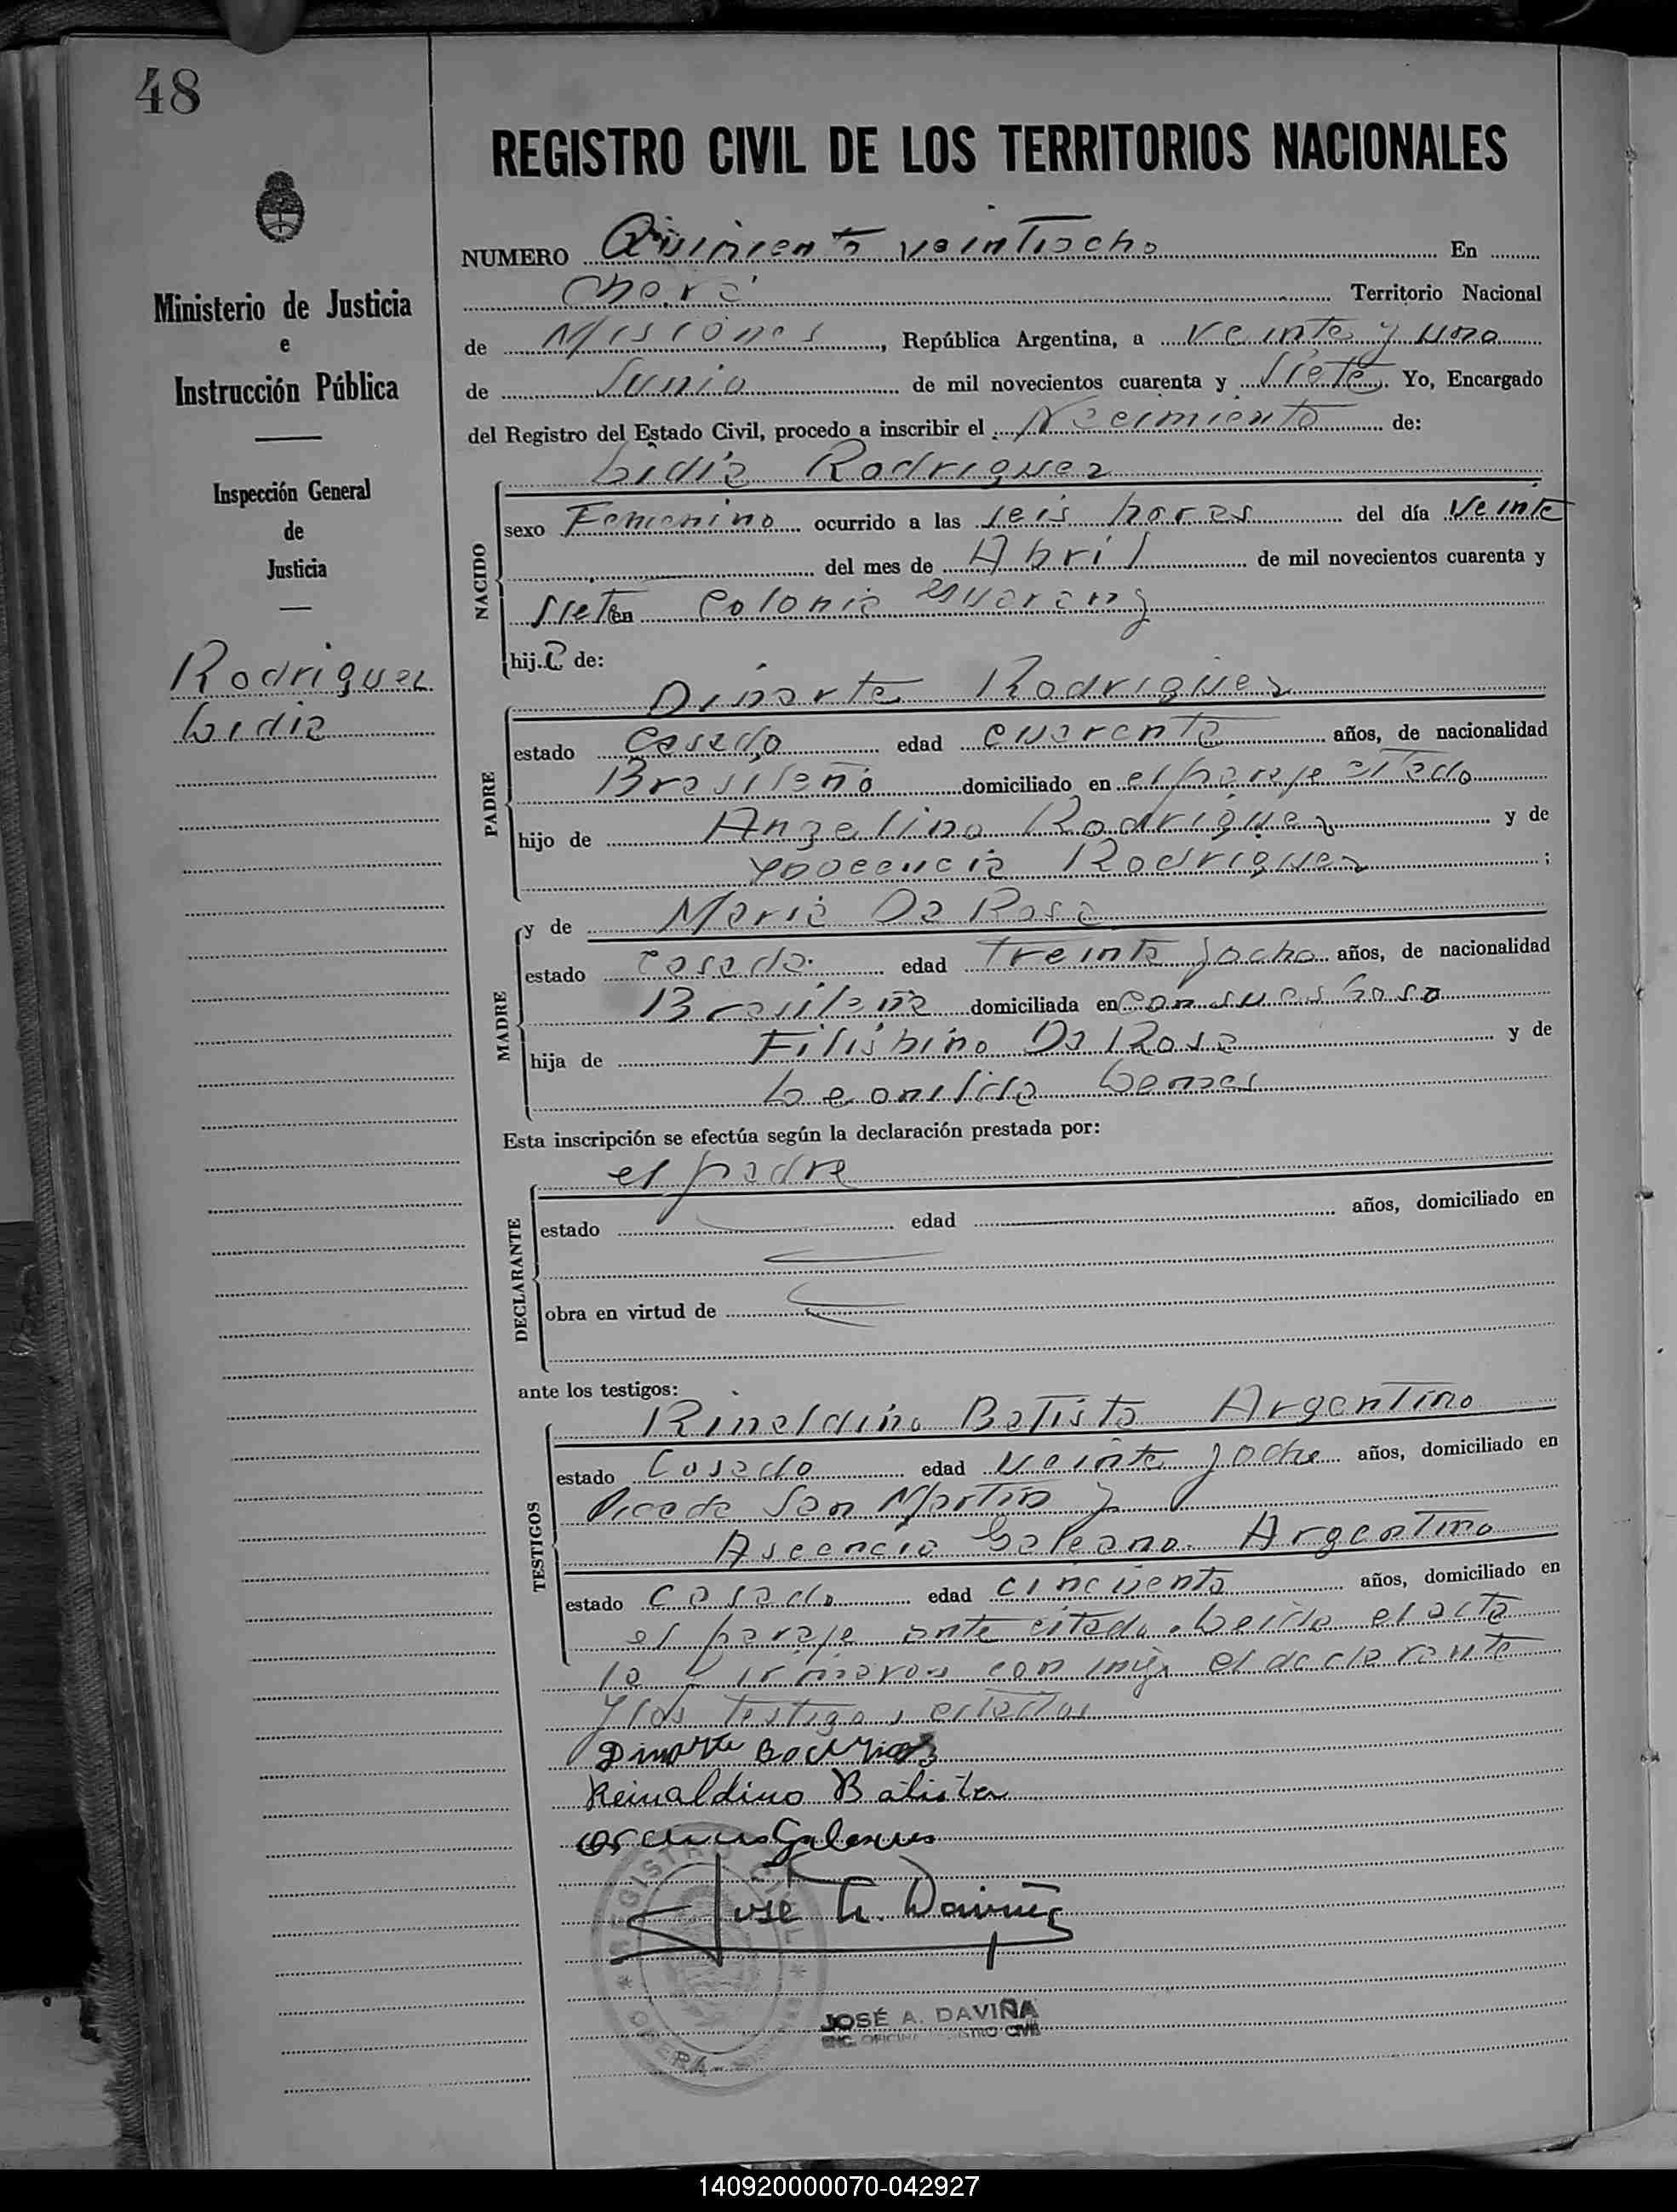 48
REGISTRO CIVIL DE LOS TERRITORIOS NACIONALES
NUMERO Quiniento veintiocho En
Territorio Nacional
Ministerio de Justicia
e
Instrucción Pública
Inspección General
de
Justicia
Rodriguez
Lidia
de Misiones, República Argentina, a veinte y uno
de Junio de mil novecientos cuarenta y siete. Yo, Encargado
del Registro del Estado Civil, procedo a inscribir el Nacimiento de:
Lidia Rodriguez
NACIDO
sexo Femenino ocurrido a las seis horas del día veinte
del mes de Abril de mil novecientos cuarenta y
siete en Colonia Guarany
hija de:
PADRE
Dinarte Rodriguez
estado casado edad cuarenta años, de nacionalidad
Brasileño domiciliado en el paraje citado
hijo de Angelino Rodriguez y de
Ynocencia Rodriguez;
MADRE
y de Maria Da Rosa
estado casada edad treinta y ocho años, de nacionalidad
Brasileña domiciliada en con su esposo
hija de Da Rosa y de
Leonilda
Esta inscripción se efectúa según la declaración prestada por:
el padre
DECLARANTE
estado edad años, domiciliado en
obra en virtud de
ante los testigos:
TESTIGOS
Rinaldino Batista Argentino
estado Casado edad veinte y ocho años, domiciliado en
Picada San Martin y
Asencio Galeano Argentino
estado casado edad cincuenta años, domiciliado en
el paraje ante citado. Leida el acta
la firmaron con migo el declarante
y los testigos citados
Dinarte
Reinaldino Batista
Galeano
José A. Daviña
REGISTRO CIVIL
OBERA
JOSÉ A. DAVIÑA
ENC. OFICINA REGISTRO CIVIL
140920000070-042927